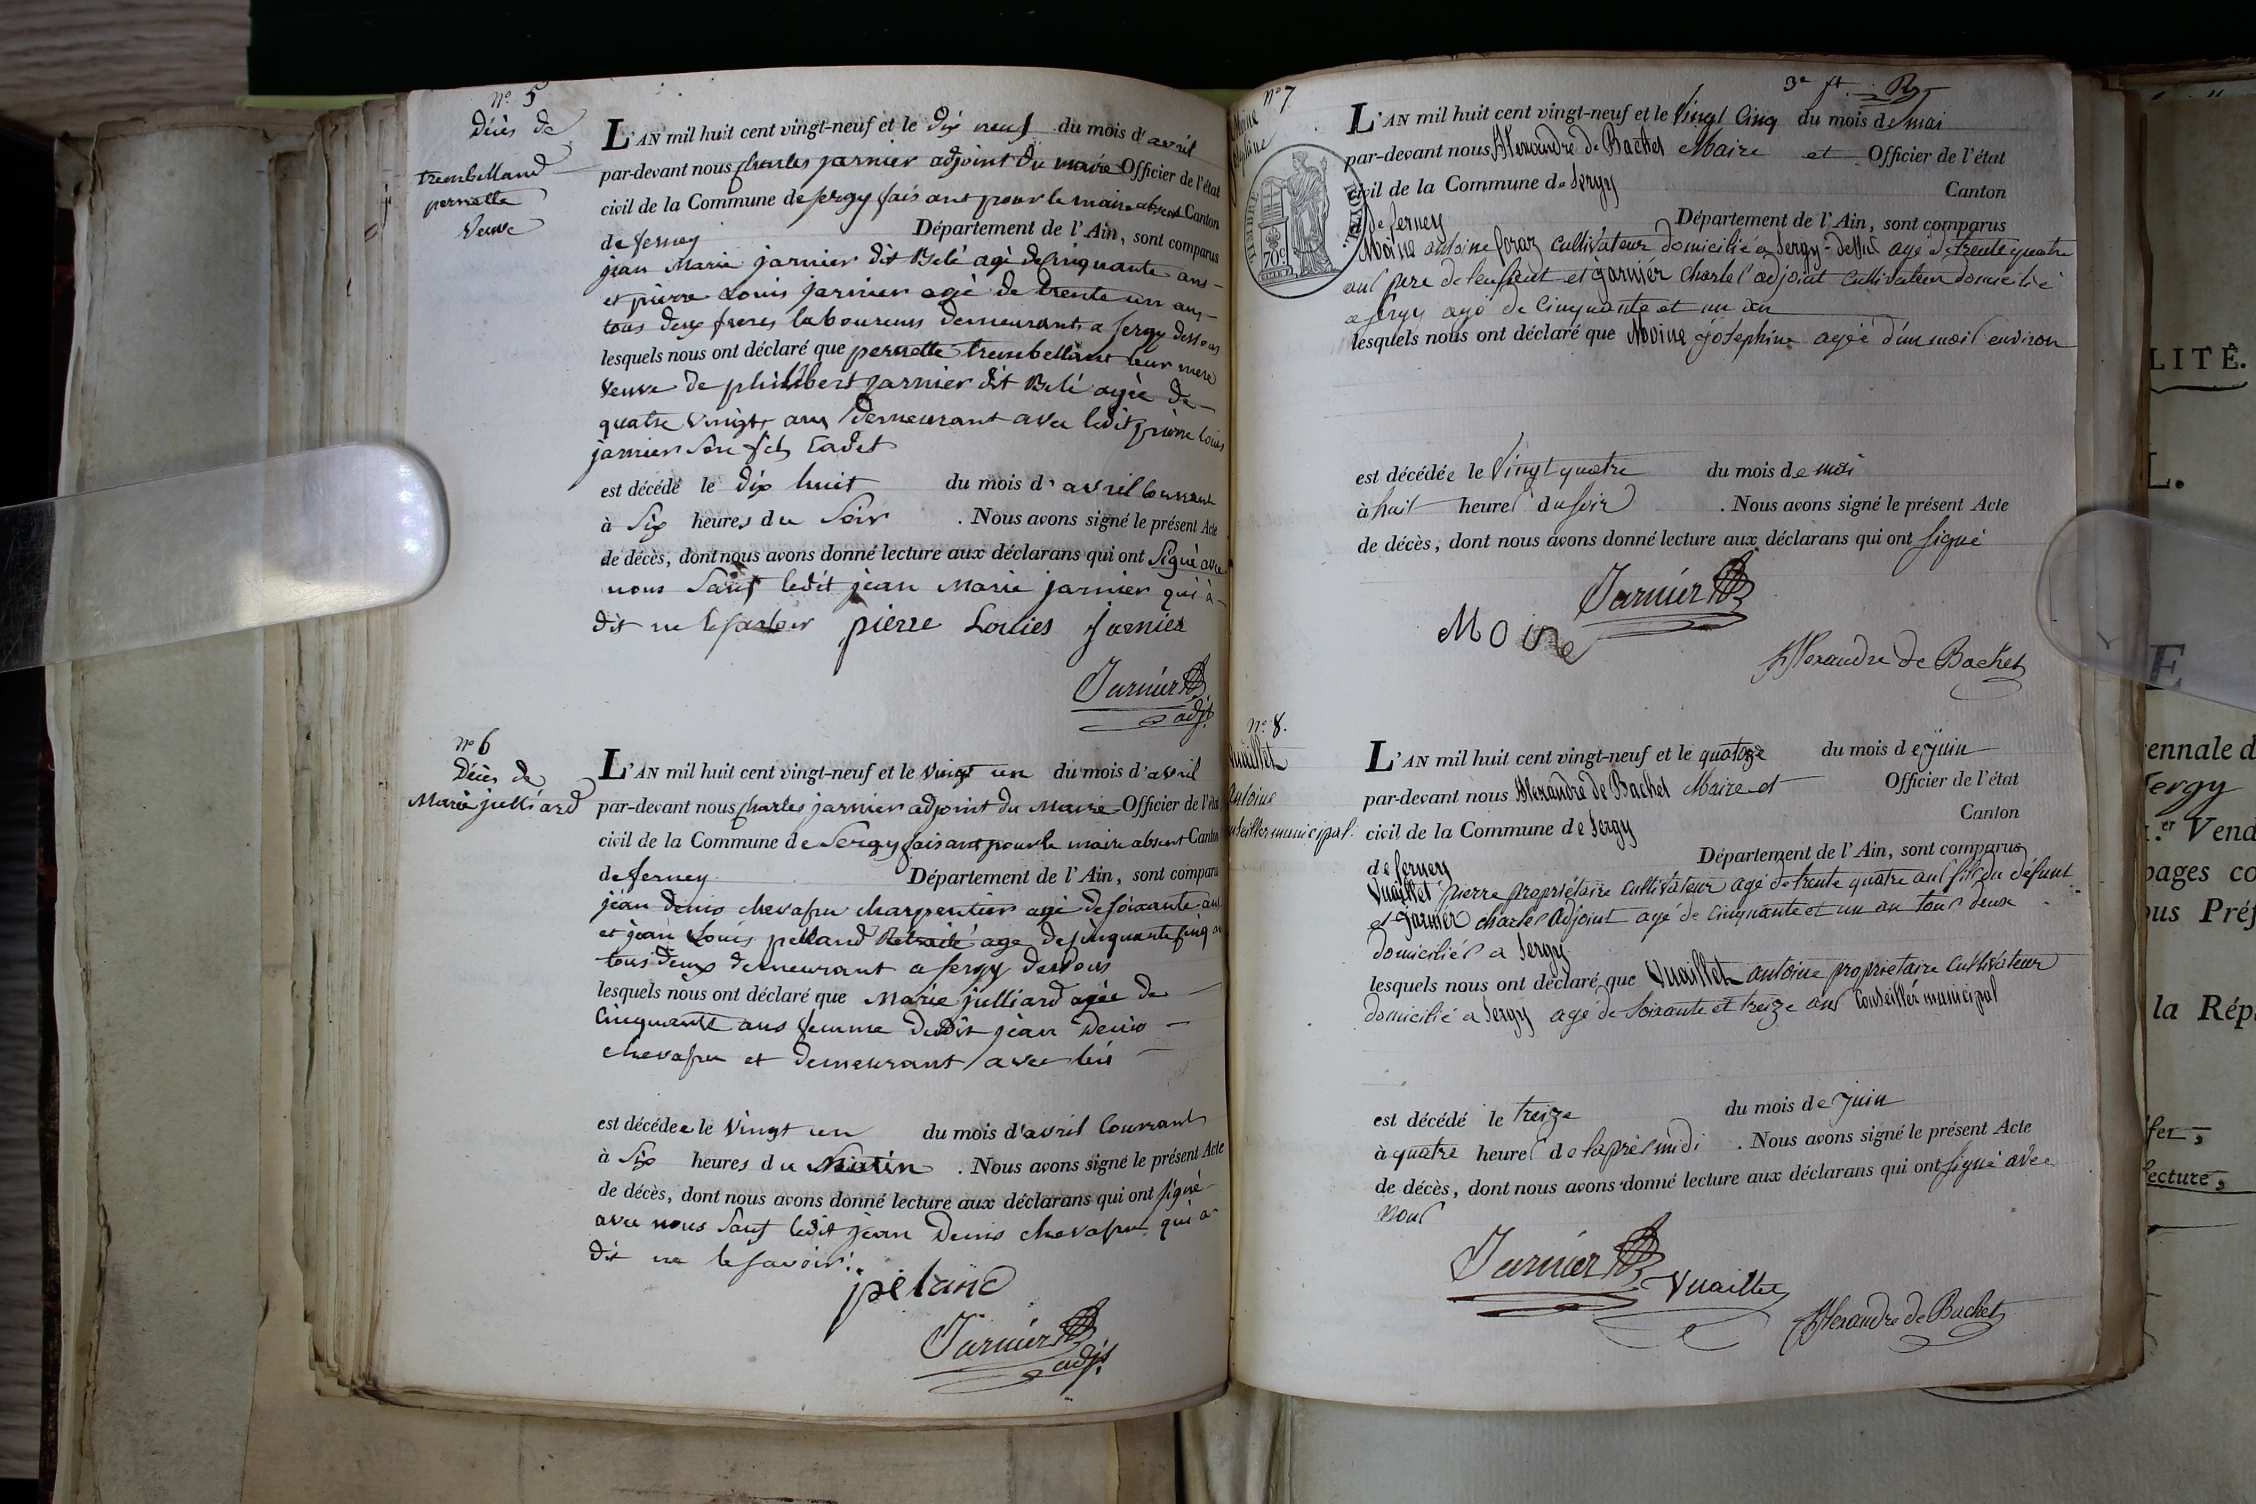 N° 5
Décès de
trembelland
pernette
Veuve
L'AN mil huit cent vingt-neuf et le dix neuf du mois d'avril
par-devant nous charles jarnier adjoint du maire Officier de l'état
civil de la Commune de Sergy faisant pour le maire absent Canton
de ferney Département de l'Ain, sont comparus
jean Marie jarnier dit Belé agé de cinquante ans
et pierre Louis jarnier agé de trente un ans
tous deux freres laboureurs demeurants a sergy dessous
lesquels nous ont déclaré que pernette trembelland leur mere
veuve de philibert jarnier dit Belé agée de
quatre vingts ans demeurant avec ledit pierre Louis
jarnier son fils Cadet
est décédé le dix huit du mois d'avril courrant
à six heures du soir . Nous avons signé le présent Acte
de décès, dont nous avons donné lecture aux déclarans qui ont signé avec
nous sauf ledit jean Marie jarnier qui à
dit ne le savoir pierre Louies jarnier
Jarnier
adjt
N° 6
Décès de
Marie julliard
L'AN mil huit cent vingt-neuf et le vingt un du mois d'avril
par-devant nous charles jarnier adjoint du Maire Officier de l'état
civil de la Commune de Sergy faisant pour le maire absent Canton
de ferney Département de l'Ain, sont comparu
jean denis chevassu charpentier agé de soixante ans
et jean Louis pelland Retraité agé de cinquante cinq
tous deux demeurant a sergy dessous
lesquels nous ont déclaré que Marie julliard agée de
cinquante ans femme dudit jean Denis
chevassu et demeurant avec lui
est décédée le vingt un du mois d'avril Courrant
à six heures du Matin . Nous avons signé le présent Acte
de décès, dont nous avons donné lecture aux déclarans qui ont signé
avec nous sauf ledit jean Denis chevassu qui a
dit ne le savoir.
peland
Jarnier
adjt
N° 7
3e ft.
josephine
TIMBRE ROYAL
70c.
L'AN mil huit cent vingt-neuf et le Vingt Cinq du mois de mai
par-devant nous Alexandre de Bachet Maire et Officier de l'état
civil de la Commune de Sergy Canton
de ferney Département de l'Ain, sont comparus
Moine antoine foraz cultivateur domicilié a Sergy-Dessus agé de trente quatre
ans pere de l'enfant et jarnier Charles adjoint cultivateur domicilié
a Sergy agé de Cinquante et un an
lesquels nous ont déclaré que Moine josephine agée d'un mois environ
est décédée le Vingt quatre du mois de mai
à huit heures du soir . Nous avons signé le présent Acte
de décès, dont nous avons donné lecture aux déclarans qui ont signé
Jarnier
Moine
Alexandre de Bachet
N° 8.
Vuaillet
antoine
conseiller municipal.
L'AN mil huit cent vingt-neuf et le quatorze du mois de juin
par-devant nous Alexandre de Bachet Maire et Officier de l'état
civil de la Commune de Sergy Canton
de ferney Département de l'Ain, sont comparus
Vuaillet pierre propriétaire cultivateur agé de trente quatre ans fils du défunt
et jarnier charles Adjoint agé de cinquante et un an tous deux
domiciliés a Sergy
lesquels nous ont déclaré que Vuaillet antoine propriétaire Cultivateur
domicilié a Sergy agé de soixante et treize ans Conseillér municipal
est décédé le treize du mois de juin
à quatre heures de l'après midi . Nous avons signé le présent Acte
de décès, dont nous avons donné lecture aux déclarans qui ont signé avec
nous
Jarnier
Vuaillet
Alexandre de Bachet
LITÉ.
L.
E
ennale d
Sergy
er Vend
pages co
ous Préf
la Rép
fer,
lecture,